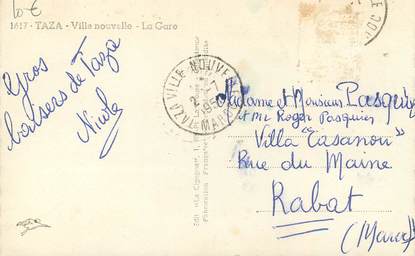 10€
1617 - TAZA - Ville nouvelle - La Gare
Gros
baisers de Taza
Nicole
TAZA VILLE NOUVELLE
MAROC
Edit. "La Cigogne"
Reproduction Interdite
Madame et Monsieur Pasquier
et Mr Roger Pasquier
Villa "Casanou"
Rue du Maine
Rabat
(Maroc)